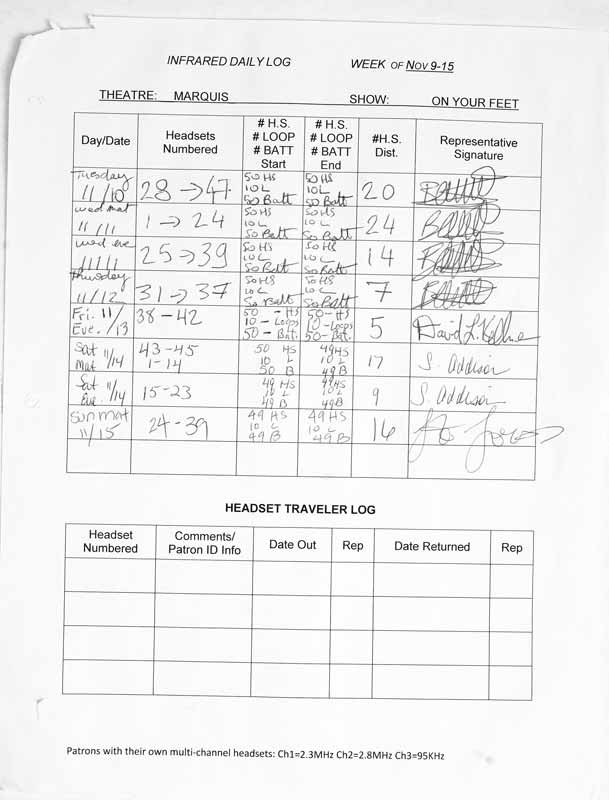 INFRARED DAILY LOG WEEK OF NOV 9-15
THEATRE: MARQUIS SHOW: ON YOUR FEET
Day/Date Headsets Numbered # H.S. # LOOP # BATT Start # H.S. # LOOP # BATT End #H.S. Dist. Representative Signature
Tuesday 11/10 28→47 50 HS 10 L 50 Batt 50 HS 10 L 50 Batt 20
wed mat 11/11 1→24 50 HS 10 L 50 Batt 50 HS 10 L 50 Batt 24
wed eve 11/11 25→39 50 HS 10 L 50 Batt 50 HS 10 L 50 Batt 14
Thursday 11/12 31→37 50 HS 10 L 50 Batt 50 HS 10 L 50 Batt 7
Fri. 11/13 Eve. 38-42 50 - HS 10 - Loops 50 - Bat. 50 - HS 10 - Loops 50 - Bat. 5 David L.
Sat 11/14 Mat 43-45 1-14 50 HS 10 L 50 B 49 HS 10 L 49 B 17 S. Addison
Sat 11/14 Eve. 15-23 49 HS 10 L 49 B 49 HS 10 L 49 B 9 S. Addison
Sun mat 11/15 24-39 49 HS 10 L 49 B 49 HS 10 L 49 B 16
HEADSET TRAVELER LOG
Headset Numbered Comments/ Patron ID Info Date Out Rep Date Returned Rep
Patrons with their own multi-channel headsets: Ch1=2.3MHz Ch2=2.8MHz Ch3=95KHz